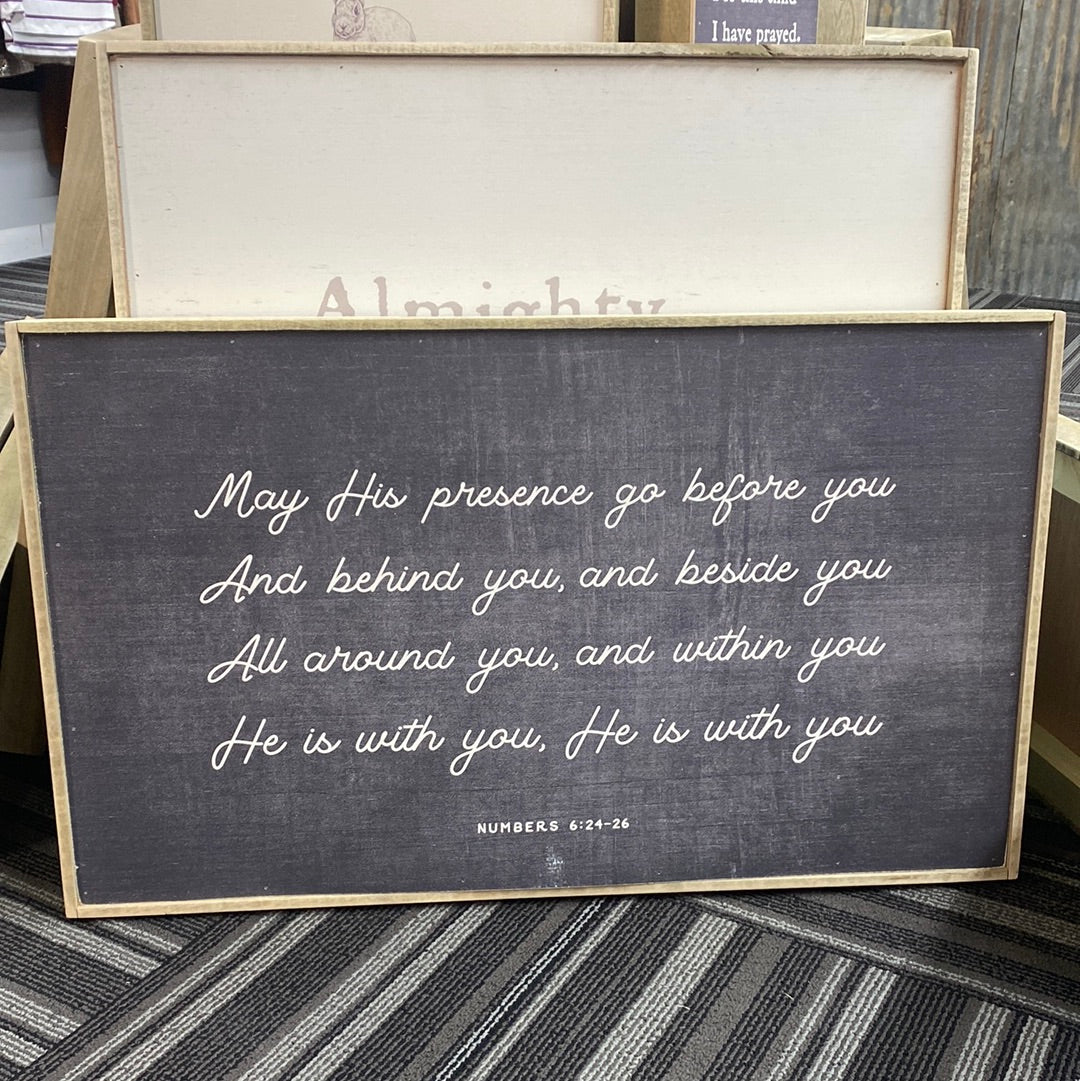 I have prayed.
Almighty
May His presence go before you
And behind you, and beside you
All around you, and within you
He is with you, He is with you
NUMBERS 6:24-26